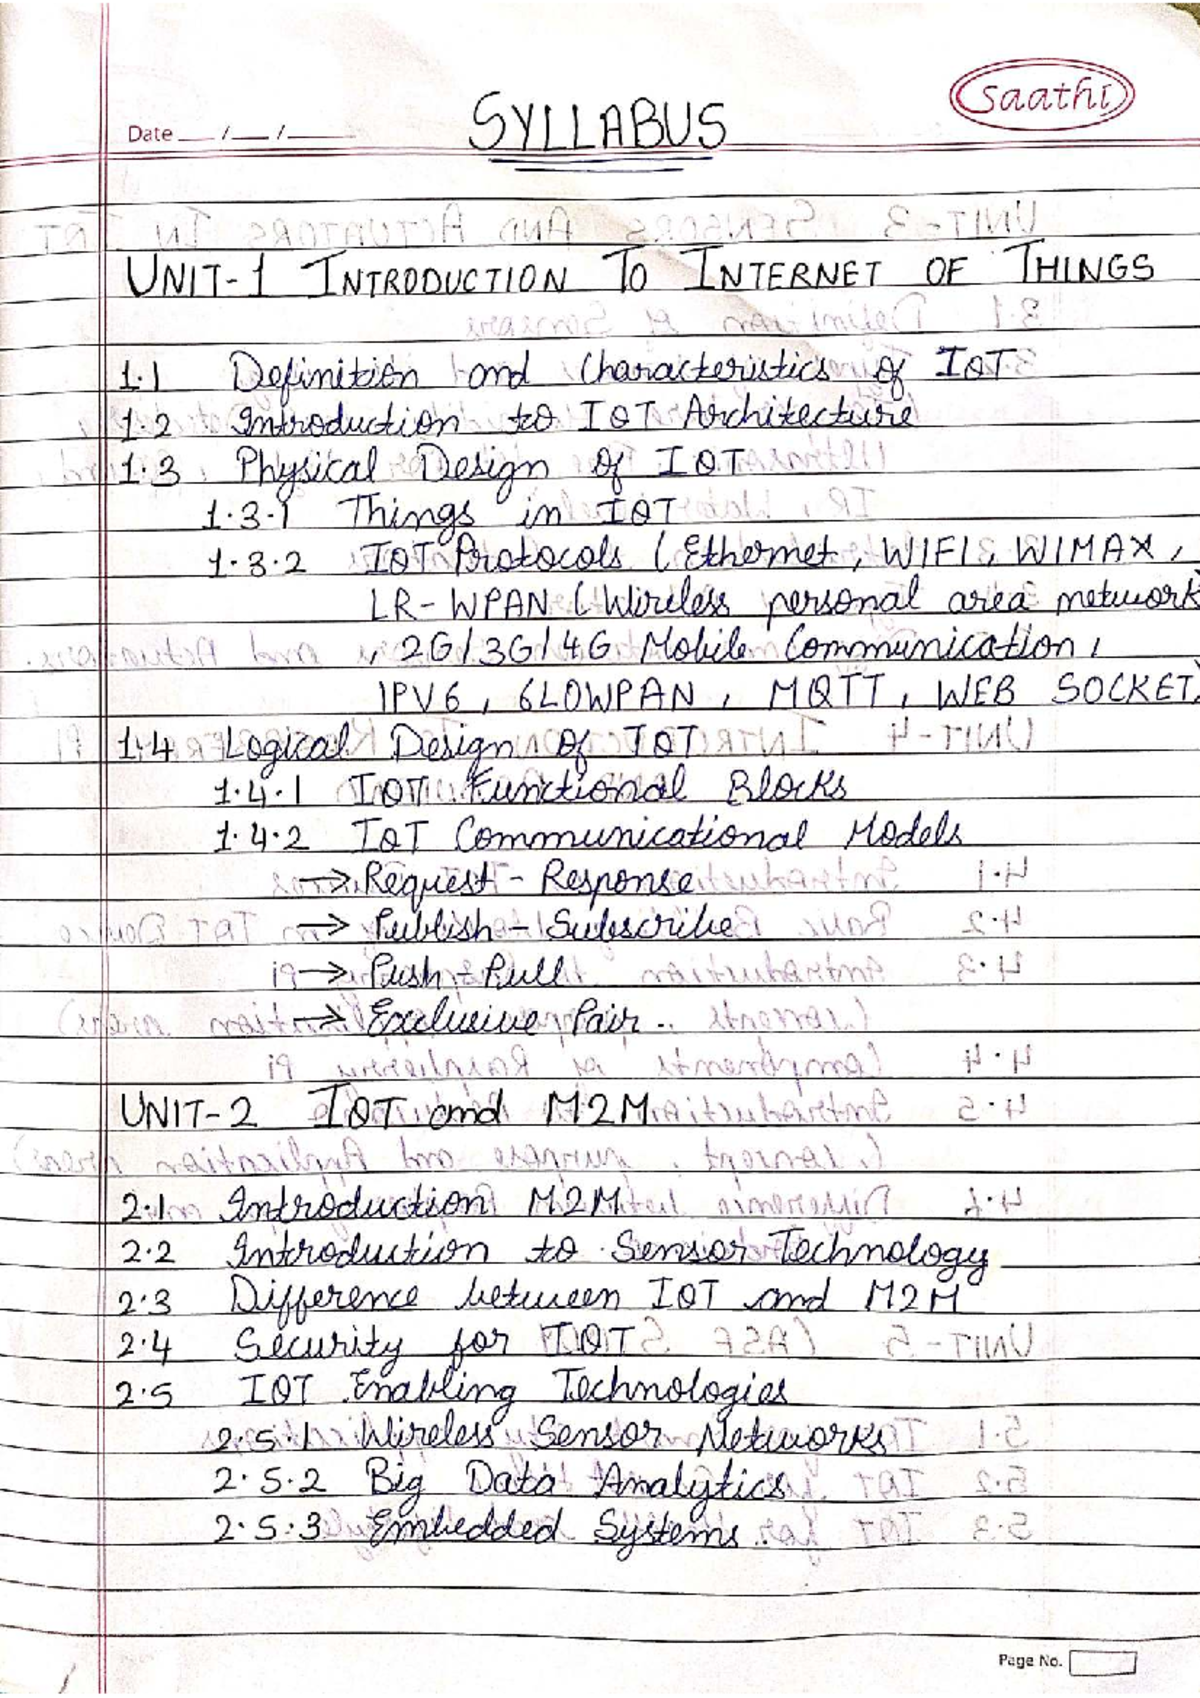 saathi
Date __/__/____
SYLLABUS
UNIT-1 INTRODUCTION TO INTERNET OF THINGS
1.1 Definition and Characteristics of IOT
1.2 Introduction to IOT Architecture
1.3 Physical Design of IOT
1.3.1 Things in IOT
1.3.2 IOT Protocols (Ethernet, WIFI, WIMAX,
LR-WPAN (Wireless personal area network)
, 2G/3G/4G Mobile Communication,
IPV6, 6LOWPAN, MQTT, WEB SOCKET)
1.4 Logical Design of IOT
1.4.1 IOT Functional Blocks
1.4.2 IOT Communicational Models
→ Request-Response
→ Publish-Subscribe
→ Push-Pull
→ Exclusive Pair.
UNIT-2 IOT and M2M
2.1 Introduction M2M
2.2 Introduction to Sensor Technology
2.3 Difference between IOT and M2M
2.4 Security for IOT
2.5 IOT Enabling Technologies
2.5.1 Wireless Sensor Networks
2.5.2 Big Data Analytics
2.5.3 Embedded Systems.
Page No.